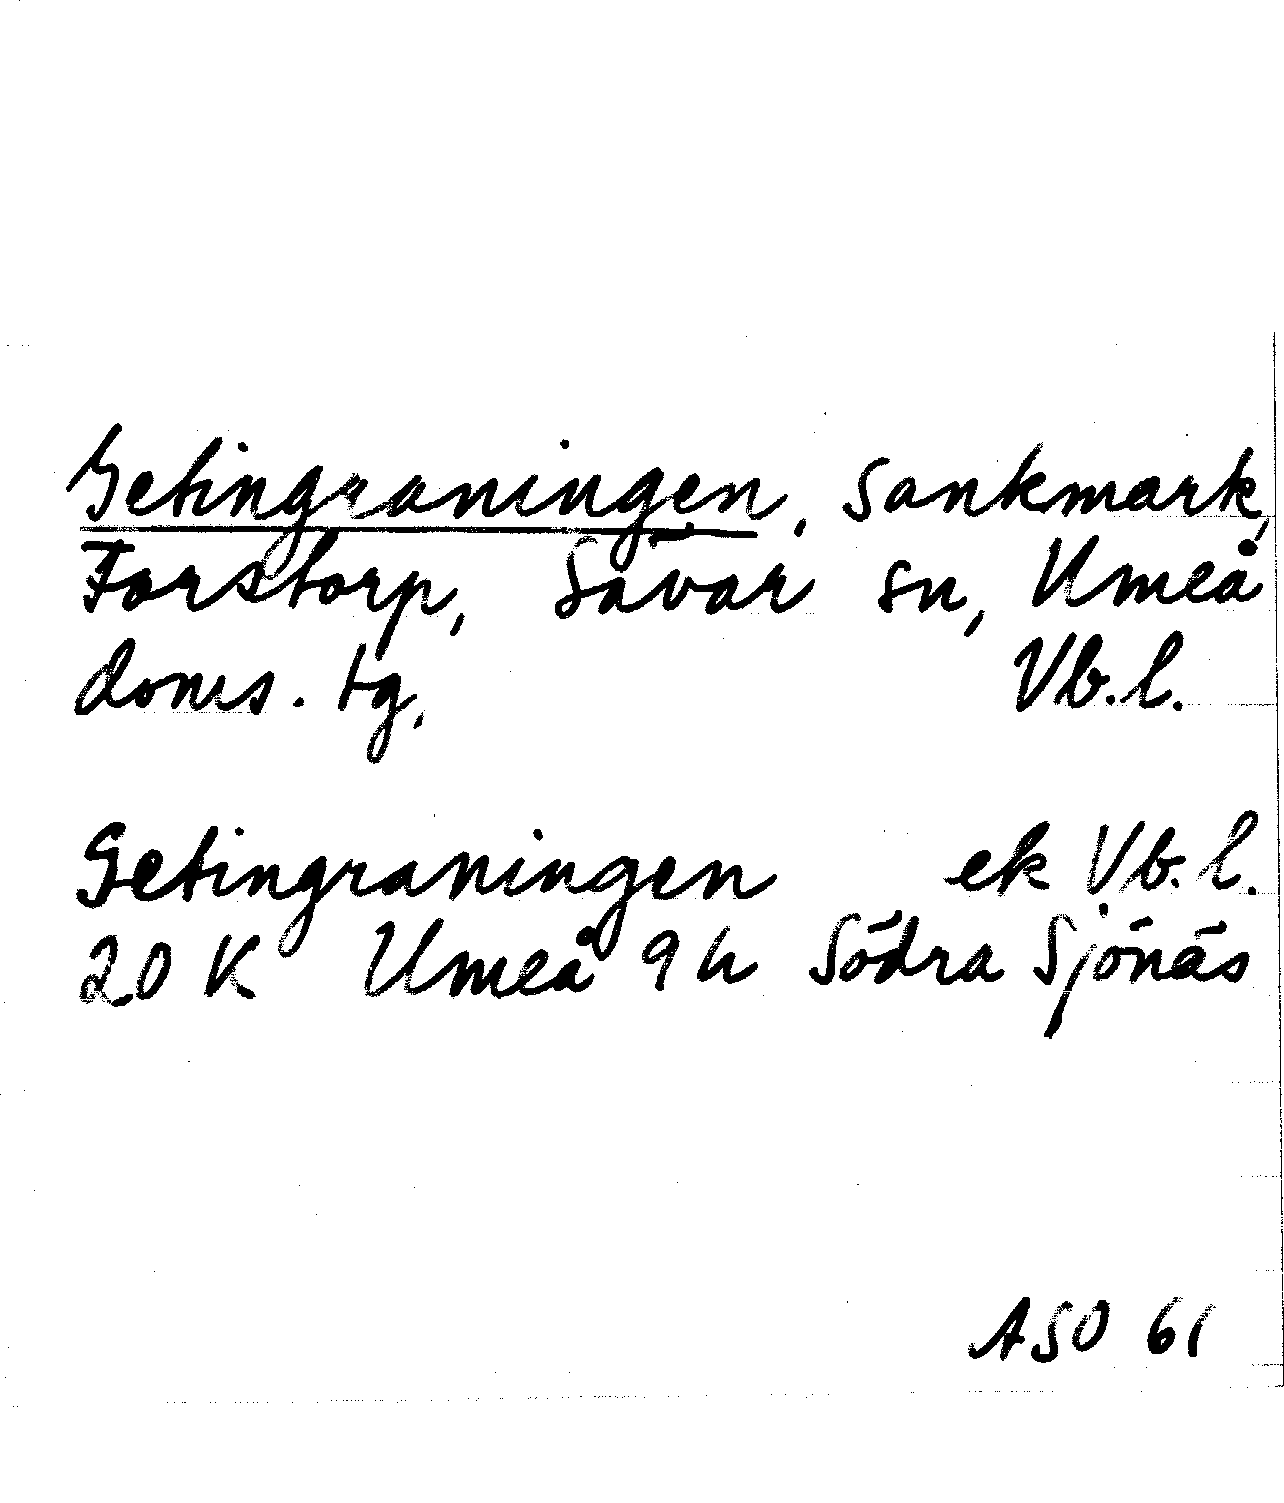 Getingraningen, Sankmark,
Forstorp, Sävar sn, Umeå
doms. tg, Vb.l.
Getingraningen ek Vb.l.
20 K Umeå 9 h Södra Sjönäs
ASO 61